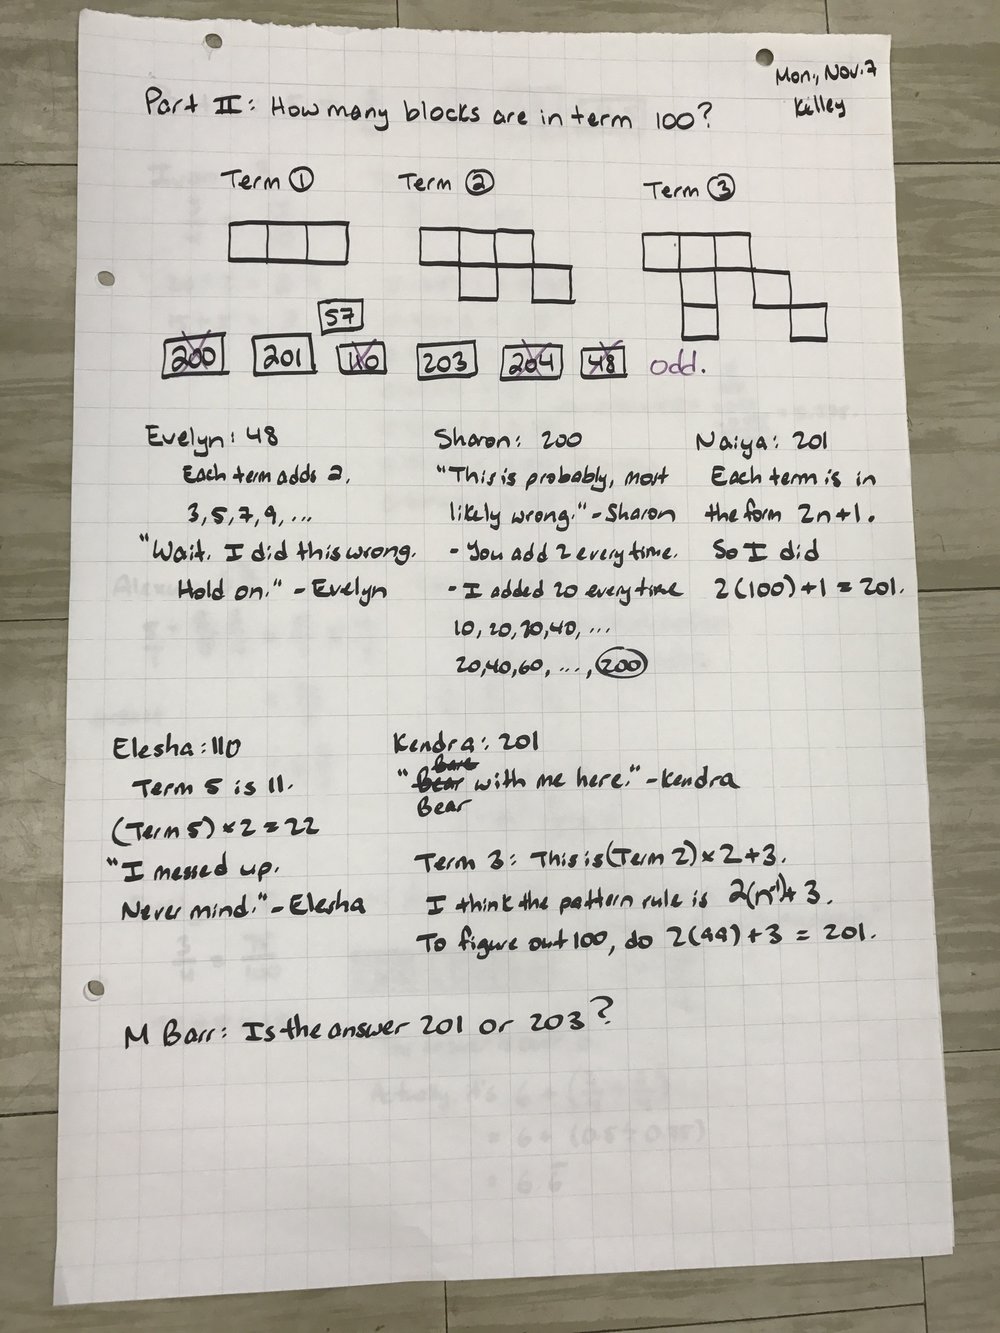 Mon., Nov. 7
Killey
Part II: How many blocks are in term 100?
Term 1
Term 2
Term 3
57
200
201
110
203
204
48
odd.
Evelyn: 48
Each term adds 2.
3, 5, 7, 9, ...
"Wait. I did this wrong.
Hold on." - Evelyn
Sharon: 200
"This is probably, most
likely wrong." - Sharon
- You add 2 every time.
- I added 20 every time
10, 20, 30, 40, ...
20, 40, 60, ..., 200
Naiya: 201
Each term is in
the form 2n+1.
So I did
2(100)+1 = 201.
Elesha: 110
Term 5 is 11.
(Term 5) × 2 = 22
"I messed up.
Never mind." - Elesha
Kendra: 201
Bare
"Bear with me here." - Kendra
Bear
Term 3: This is (Term 2) × 2 + 3.
I think the pattern rule is 2(n-1)+3.
To figure out 100, do 2(99)+3 = 201.
M Barr: Is the answer 201 or 203?